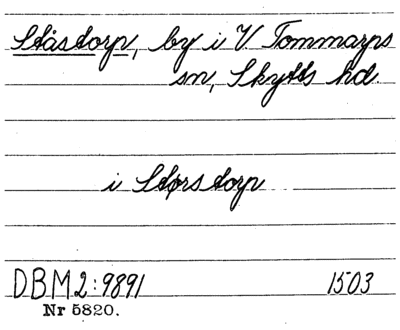 Ståstorp, by i V. Tommarps
sn, Skytts hd.
i Størstorp
DBM2:9891 1503
Nr 5820.